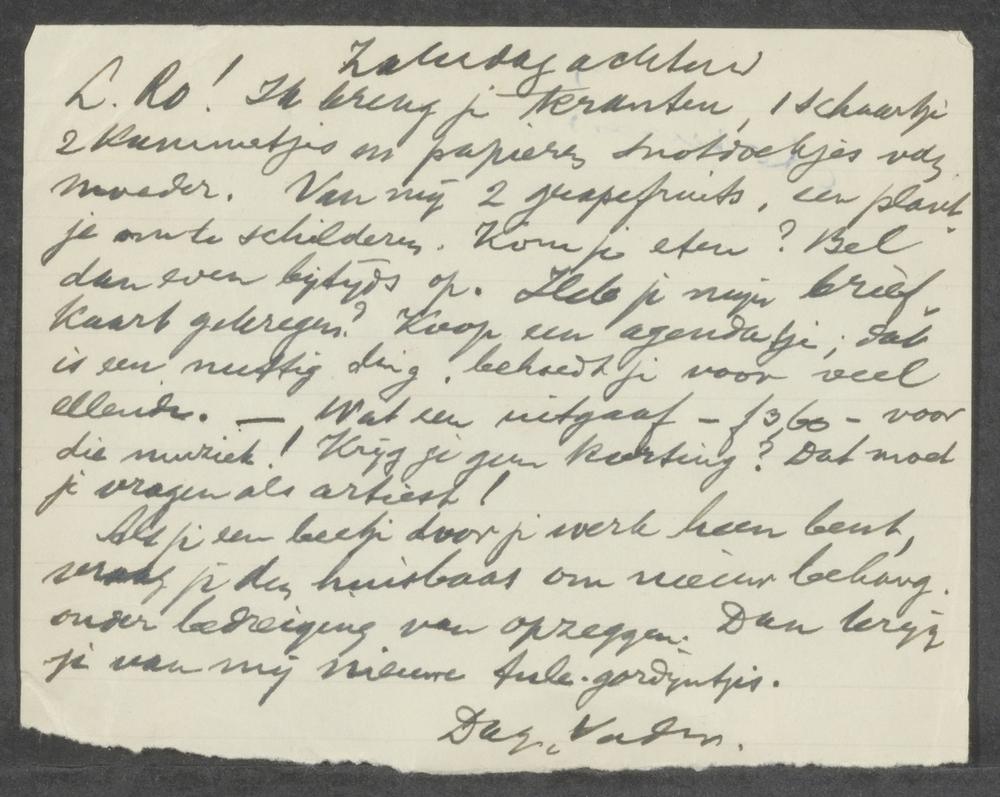 Zaterdagachterm
L. Ro! Ik breng je kranten, 1 schaartje
2 kammetjes en papieren snotdoekjes van
moeder. Van mij 2 grapefruits, een plant-
je om te schilderen. Kom je eten? Bel
dan even bijtijds op. Heb je mijn brief-
kaart gekregen? Koop een agendatje, dat
is een nuttig ding, behoedt je voor veel
ellende. — Wat een uitgaaf - f 3,60 - voor
die muziek! Krijg je geen korting? Dat moet
je vragen als artiest!
Als je een beetje door je werk heen bent,
vraag je den huisbaas om nieuw behang.
onder bedreiging van opzeggen. Dan krijg
je van mij nieuwe tule-gordijntjes.
Dag, Vader.